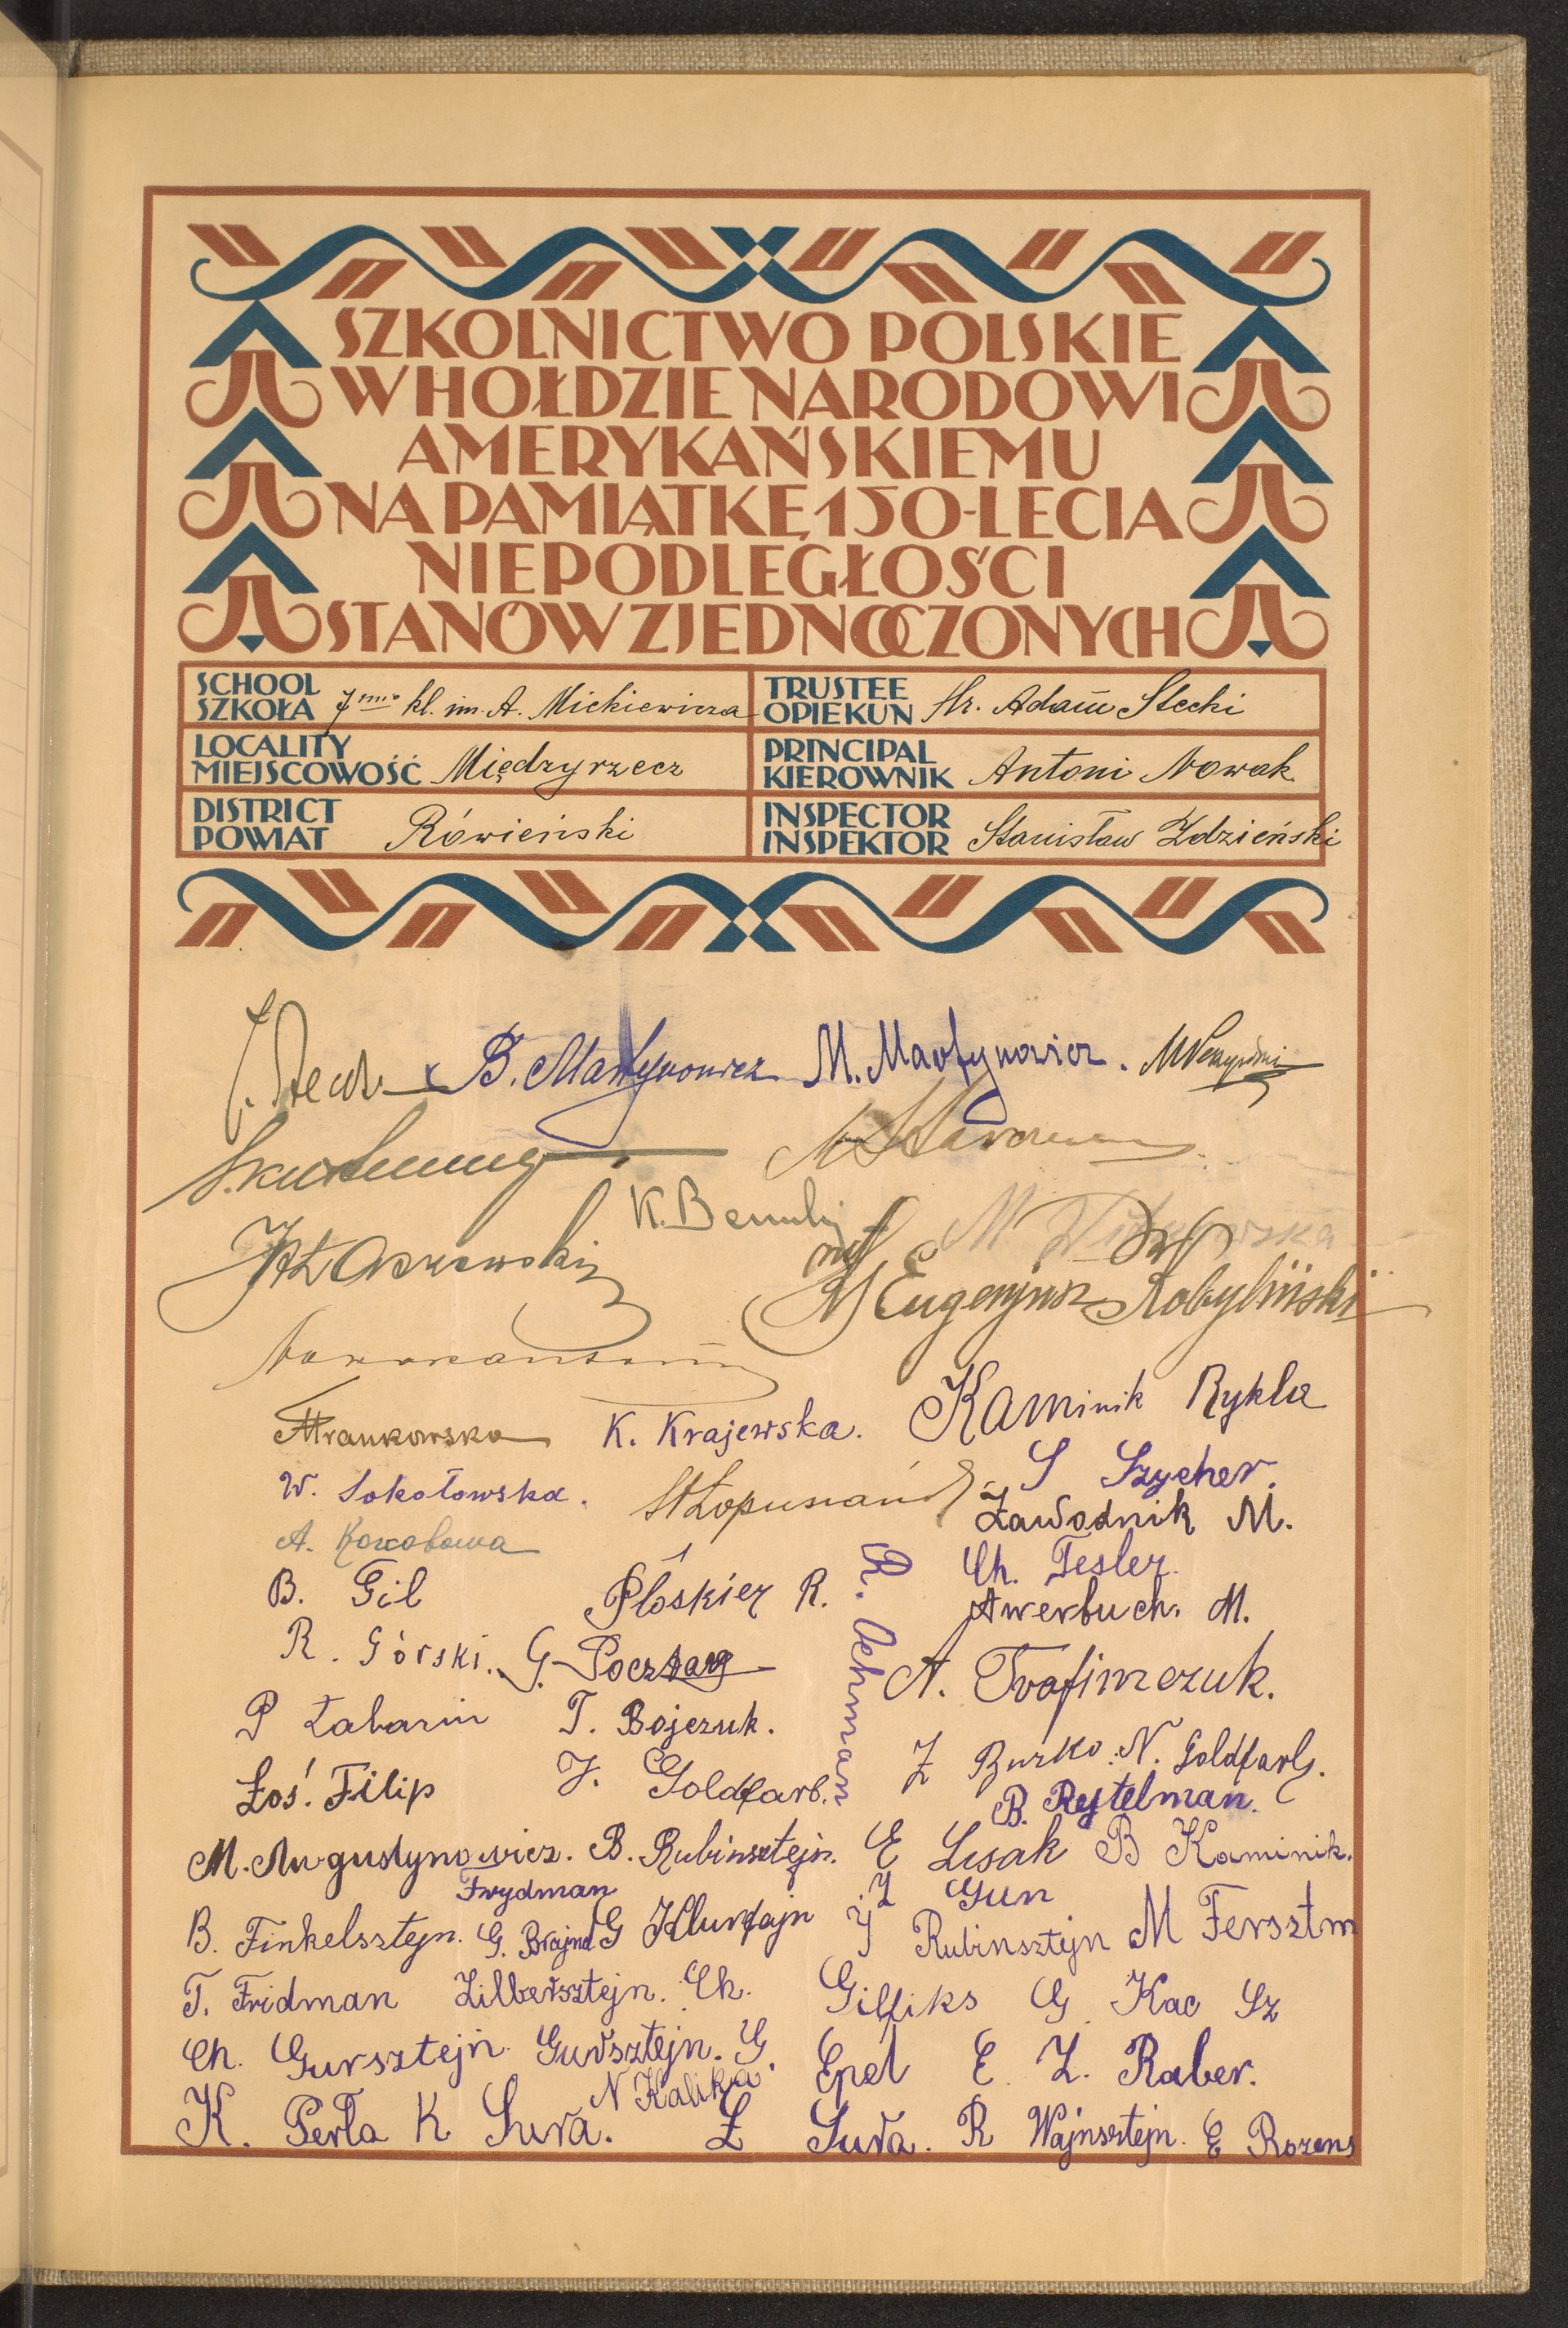 SZKOLNICTWO POLSKIE
W HOŁDZIE NARODOWI
AMERYKAŃSKIEMU
NA PAMIĄTKĘ 150-LECIA
NIEPODLEGŁOŚCI
STANÓW ZJEDNOCZONYCH
SCHOOL SZKOŁA 7mio kl. im. A. Mickiewicza
TRUSTEE OPIEKUN Hr. Adam Stecki
LOCALITY MIEJSCOWOŚĆ Międzyrzecz
PRINCIPAL KIEROWNIK Antoni Nowak
DISTRICT POWIAT Rówieński
INSPECTOR INSPEKTOR Stanisław Zdzieński
B. Martynowicz M. Martynowicz.
K.
M
Eugenjusz Kobyliński
K. Krajewska. Kaminik Rykla
W. Sokołowska. S Szycher.
Zawodnik M.
A.
Ch. Tesler.
B. Gil Płoskier R. Awerbuch. M.
R. Górski. G. Pocztar
R. Ochman
A. Trofimczuk.
P Łabarin T. Bojczuk.
Z Burko. N. Goldfarb.
Łoś. Filip J. Goldfarb. B. Rejtelman.
M. Augustynowicz. B. Rubinsztejn. E Lisak B Kaminik.
Frydman Z Gun
B. Finkelsztejn. G. Brajnd G J Rubinsztejn M Fersztm
T. Fridman Zilbersztejn. Ch. Gilfiks G. Kac Sz
Ch. Gursztejn. Gursztejn. G. Epel E. Z. Raber.
N Kalika.
K. Perła K Sura. Z Sura. R Wajnsztejn. E Rozens